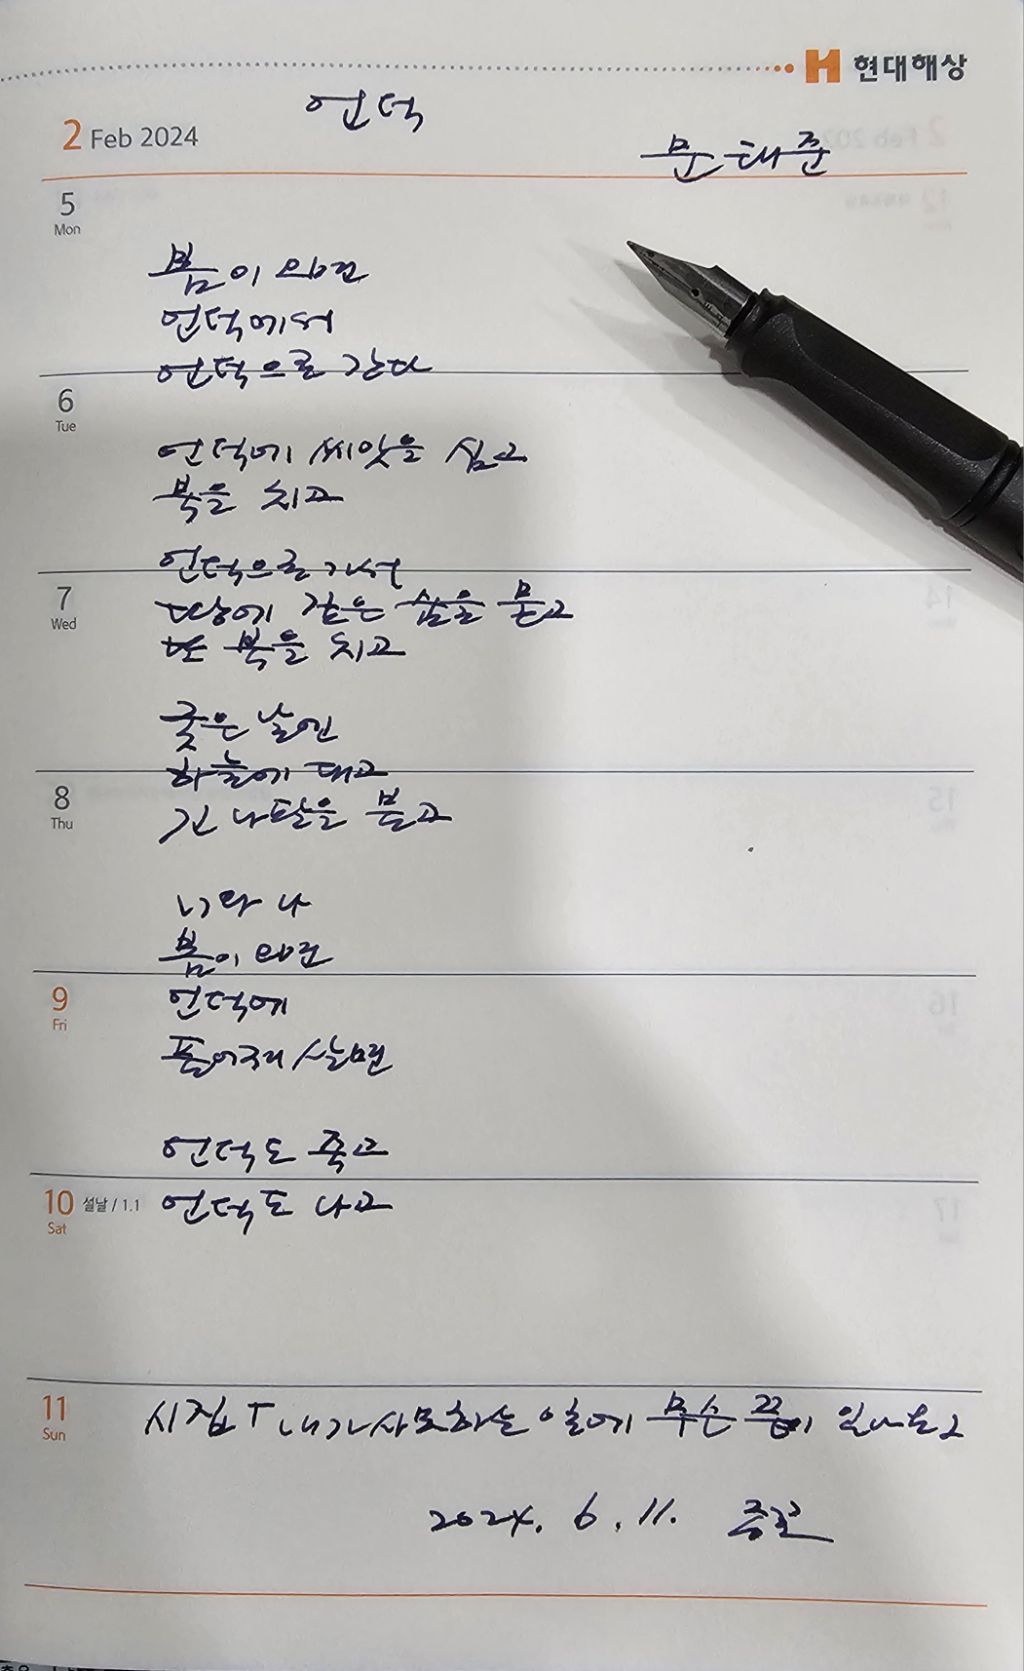 현대해상
언덕
2 Feb 2024
문태준
5
Mon
봄이 오면
언덕에서
언덕으로 간다
6
Tue
언덕에 씨앗을 심고
북을 치고
언덕으로 가서
7
Wed
땅에 깊은 삶을 묻고
또 북을 치고
궂은 날엔
하늘에 대고
8
Thu
긴 나팔을 불고
너와 나
봄이 오면
9
Fri
언덕에
풀어져 살면
언덕도 좋고
10 설날 / 1.1
Sat
언덕도 나고
11
Sun
시집 「내가 사모하는 일에 무슨 끝이 있나요」
2024. 6. 11.